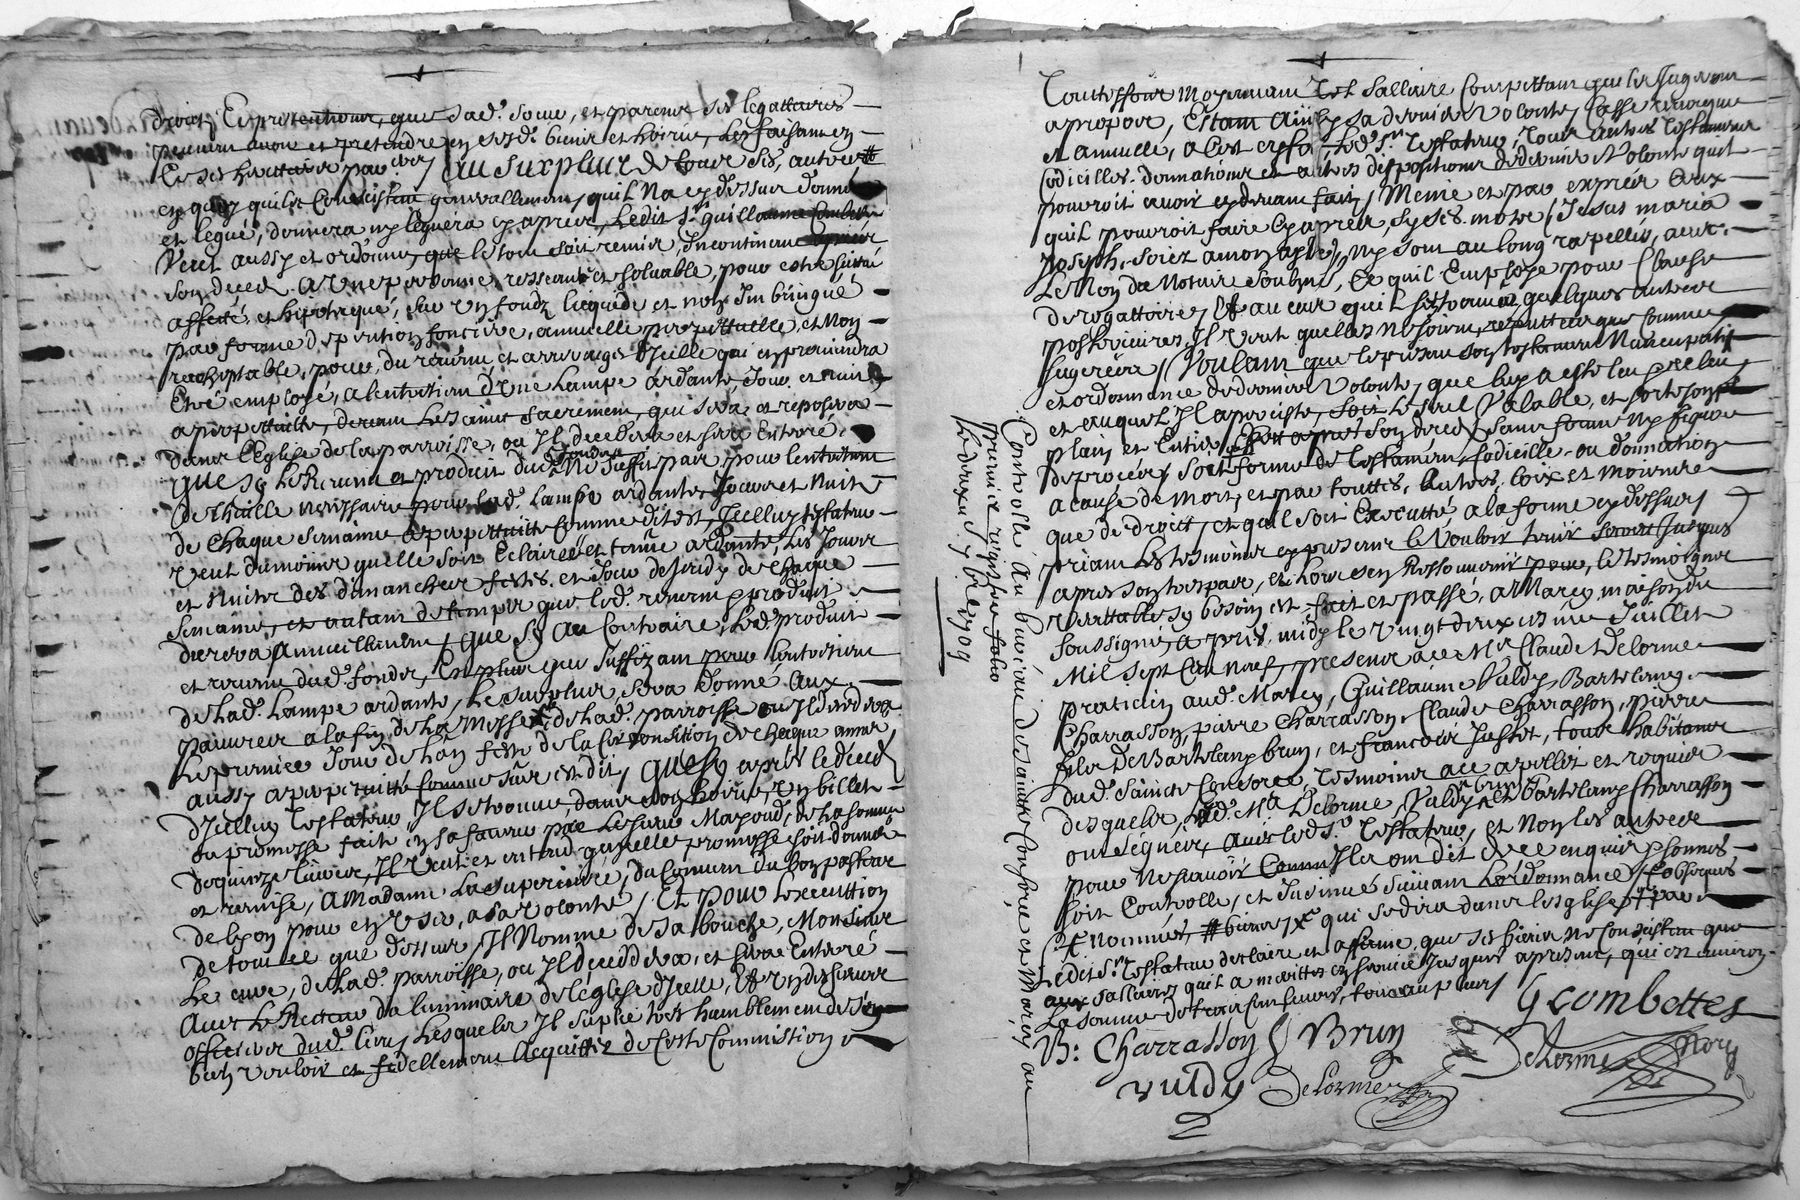 droicts Et pretentions, que sad. soeur, et parents ses legattaires
peuvent avoir et pretendre en sesd. biens et hoirie, les faisant en
Ce ses heritiers par. Au surplus de tous ses autres #
en quoy quils Consistent generallement, quil Na cy dessus donné
et legué, donnera ny leguera cy apres, Ledit Sr guillaume Combettes
Veut aussy et ordonne, que le tout soit remis, Incontinent apres
son deced. A Une personne resseante et soluable, pour estre
affecté et hipotequé, sur un fondz liequide et non Imbringué
par forme de pention fonciere, annuelle perpettuelle, et Non
racheptable, pour, du revenu, et arrerages d'Icelle qui en proviendra
Etre employé, a lentretien d'Une Lampe ardante, Jour et nuit
a perpettuitté, devant Le saint sacrement, qui sera et reposera
dans l'Eglise de la parroisse, ou Il deceddera et sera Enterré.
Que sy Le Revenu et produit dud. fondz Ne suffit pas, pour lentretient
de Lhuille necessaire pour lad. Lampe ardante, Jour et Nuit
de chaque semaine a perpettuitté comme dit est, Icelluy testateur
Veut du moins quelle soit Eclairée et tenüe ardante, Les Jours
et Nuits des dimanches festes et Jour de Jeudy de chaque
semaine, et autant de temps que led. revenu produit
durera Annuellement, Que sy Au Contraire, Led. produit
et revenu dud. fondz, Est plus que suffizant pour lentretient
de Lad. Lampe ardante, Le surplus sera donné aux
pauvres a la fin de La Messe de Lad. parroisse ou Il deceddera
Le premier Jour de Lan feste de la Circoncition de chaque année
aussy a perpetuitté comme sus est dit, Que sy apres le deced
d'Icelluy Testateur Il se trouve, dans son hoirie, Un billet
ou promesse fait en sa faveur par Le sieur Mazoud, de La somme
de quinze Livres, Il Veut et entend qu'Icelle promesse soit donnée
et remise, A Madame La superieure, du Couvent du bon pasteur
de lyon pour en User, a sa Volonté, Et pour l'executtion
de tout ce que dessus, Il Nomme de sa bouche, Monsieur
Le curé, de Lad. parroisse, ou Il deceddera, et sera Enterré
Avec Le Recteur du luminaire de l'eglise d'Icelle, Et Un des sieurs
officiers dud. lieu, Lesquels Il suplie tres humblement de s'en
bien vouloir et fidellement Acquitter de Cette Commistion
Touttesfois Moyennant Tel Sallaire Competttant que les Juges
a propos, Estant Ainsy sa derniere Volonté, Casse revoque
et annulle, a Cest effet, Led. Sr Testateur Tous autres Testaments
Codicilles donnations et autres dispositions de derniere Volonté quil
pouvroit avoir cy devant fait, Meme et par exprés Ceux
quil pouvroit faire cy apres, sy ces mots (Jesus maria
Joseph, soiez a mon ayde), Ny sont au long rapellés, avec
Le Non du Notaire soubzné, Ce quil Employe pour Clause
derogattoire, Et au cas quil s'en trouve quelques autres
posterieures, Il Veut quelles Ne soient, reputtées que comme
sugerées, Voulant que le present son testament Nuncupatif
et ordonnance de derniere Volonté, que luy a esté leu et releu
et auquel Il a persisté, soit Le seul Valable, et sorte son
plain et Entier Effet apres son deced, sans forme Ny figure
de procés, soit forme de Testament, Codicille, ou donnation
a cause de mort, et par touttes, Autres, loix et moiens
que de droict, et quil soit Executté, a la forme cy dessus,
priant Les tesmoins cy presents le vouloir tenir secret Jusques
apres son trespas, et Lors s'en Ressouvenir pour, le tesmoigner
Verittable sy besoin est, fait et passé, a Marcy maison du
soussigné, apres midy le Vingt deuxiesme Juillet
Mil sept Cent neuf, presents a ce Mr Claude Delorme
praticien aud. Marcy, Guillaume Vuldy, Bartelemy
Charrasson, pierre Charrasson, Claude Charrasson, pierre
fils De Bartelemy brun, et francois Jusset, tous habitants
dud. Saincte Consorce, Tesmoins a ce apellés et requis
desquels, Led. Mr Delorme, Vuldy, brun, et Bartelemy Charrasson
ont signés, Avec led. Sr Testateur, et Non les autres
pour Ne savoir Comm Ils ont dit de ce enquis et sommés
soit Controllé, et Insinués suivant L'ordonnance,
nommés # biens, qui se dira dans l'esglise
Ledit Sr Testateur declare et affirme, que ses biens ne consistent que
aux sallaires quil a merittés en service Jusques a present, qui est environ
La somme de trois Cens livres, tout au plus
G Combettes
B: Charrasson Brun Delorme
vuldy Delorme
Controllé Au bureau de Saincte Consorce et Marcy au
premier registre folio
Le deux aoust 1709